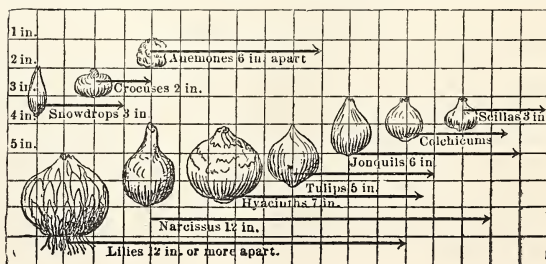 1 in.
Anemones 6 in. apart
2 in.
Crocuses 2 in.
3 in.
Snowdrops 3 in.
Scillas 3 in
4 in.
Colchicums
5 in.
Jonquils 6 in
Tulips 5 in.
Hyacinths 7 in.
Narcissus 12 in.
Lilies 12 in. or more apart.